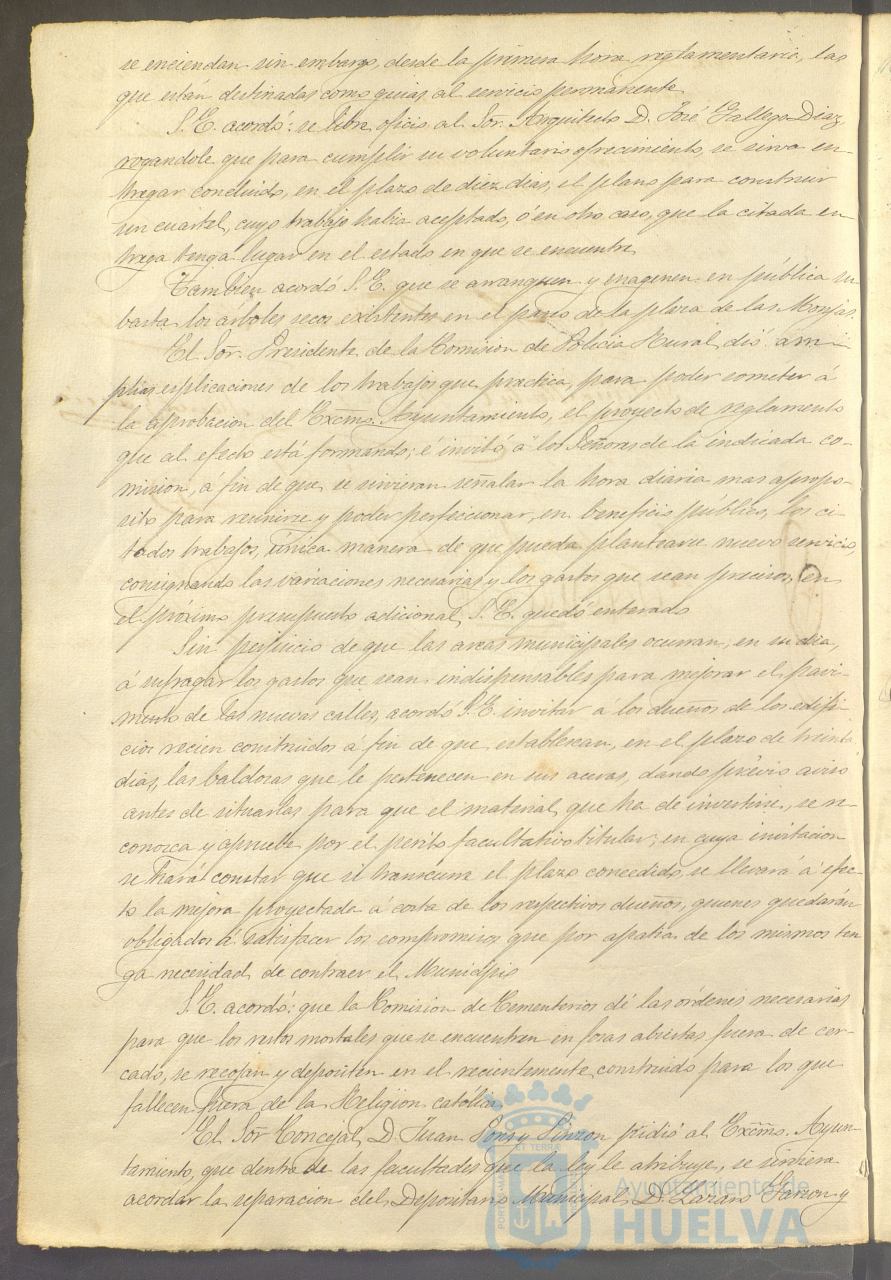 se enciendan sin embargo, desde la primera hora reglamentaria, las
que estan destinadas como guias al servicio permanente.
S.E. acordó: se libre oficio al Sor. Arquitecto D. José Gallego Diaz
rogandole que para cumplir su voluntario ofrecimiento, se sirva en-
tregar concluido, en el plazo de diez dias, el plano para construir
un cuartel, cuyo trabajo habia aceptado, ó en otro caso, que la citada en-
trega tenga lugar en el estado en que se encuentre
Tambien acordó S.E. que se arranquen y enagenen en pública su-
basta los árboles secos existentes en el paseo de la plaza de las Monjas.
El Sor. Presidente de la Comision de Policia Rural, dió am-
plias esplicaciones de los trabajos que practica, para poder someter á
la aprobacion del Excmo. Ayuntamiento, el proyecto de reglamento
que al efecto está formando; é invitó á los Señores de la indicada co-
mision, a fin de que se sirvieran señalar la hora diaria mas apropo-
sito para reunirse y poder perfeccionar, en beneficio público, los ci-
tados trabajos, única manera de que pueda plantearse nuevo servicio,
consignando las variaciones necesarias y los gastos que sean precisos, en
el próximo presupuesto adicional, S.E. quedó enterado
Sin perjuicio de que las arcas municipales ocurran, en su dia,
á sufragar los gastos que sean indispensables para mejorar el pavi-
mento de las nuevas calles, acordó S.E. invitar á los dueños de los edifi-
cios recien construidos á fin de que establezcan, en el plazo de treinta
dias, las baldosas que le pertenecen en sus aceras, dando prévio aviso
antes de situarlas para que el material, que ha de invertirse, se re-
conozca y apruebe por el perito facultativo titular; en cuya invitacion
se hará constar que si transcurre el plazo concedido, se llevará á efec-
to la mejora proyectada á costa de los respectivos dueños, quienes quedarán
obligados á satisfacer los compromisos que por apatia de los mismos ten-
ga necesidad de contraer el Municipio
S.E. acordó: que la Comision de Cementerios dé las órdenes necesarias
para que los restos mortales que se encuentren en fosas abiertas fuera de cer-
cado, se recojan y depositen en el recientemente construido para los que
fallecen fuera de la Religion católica.
El Sor. Concejal, D. Juan Pons y Pinzon pidió al Excmo. Ayun-
tamiento, que dentro de las facultades que la ley le atribuye, se sirviera
acordar la separacion del Depositario Municipal, D. Lazaro Garzon y
Ayuntamiento de
HUELVA